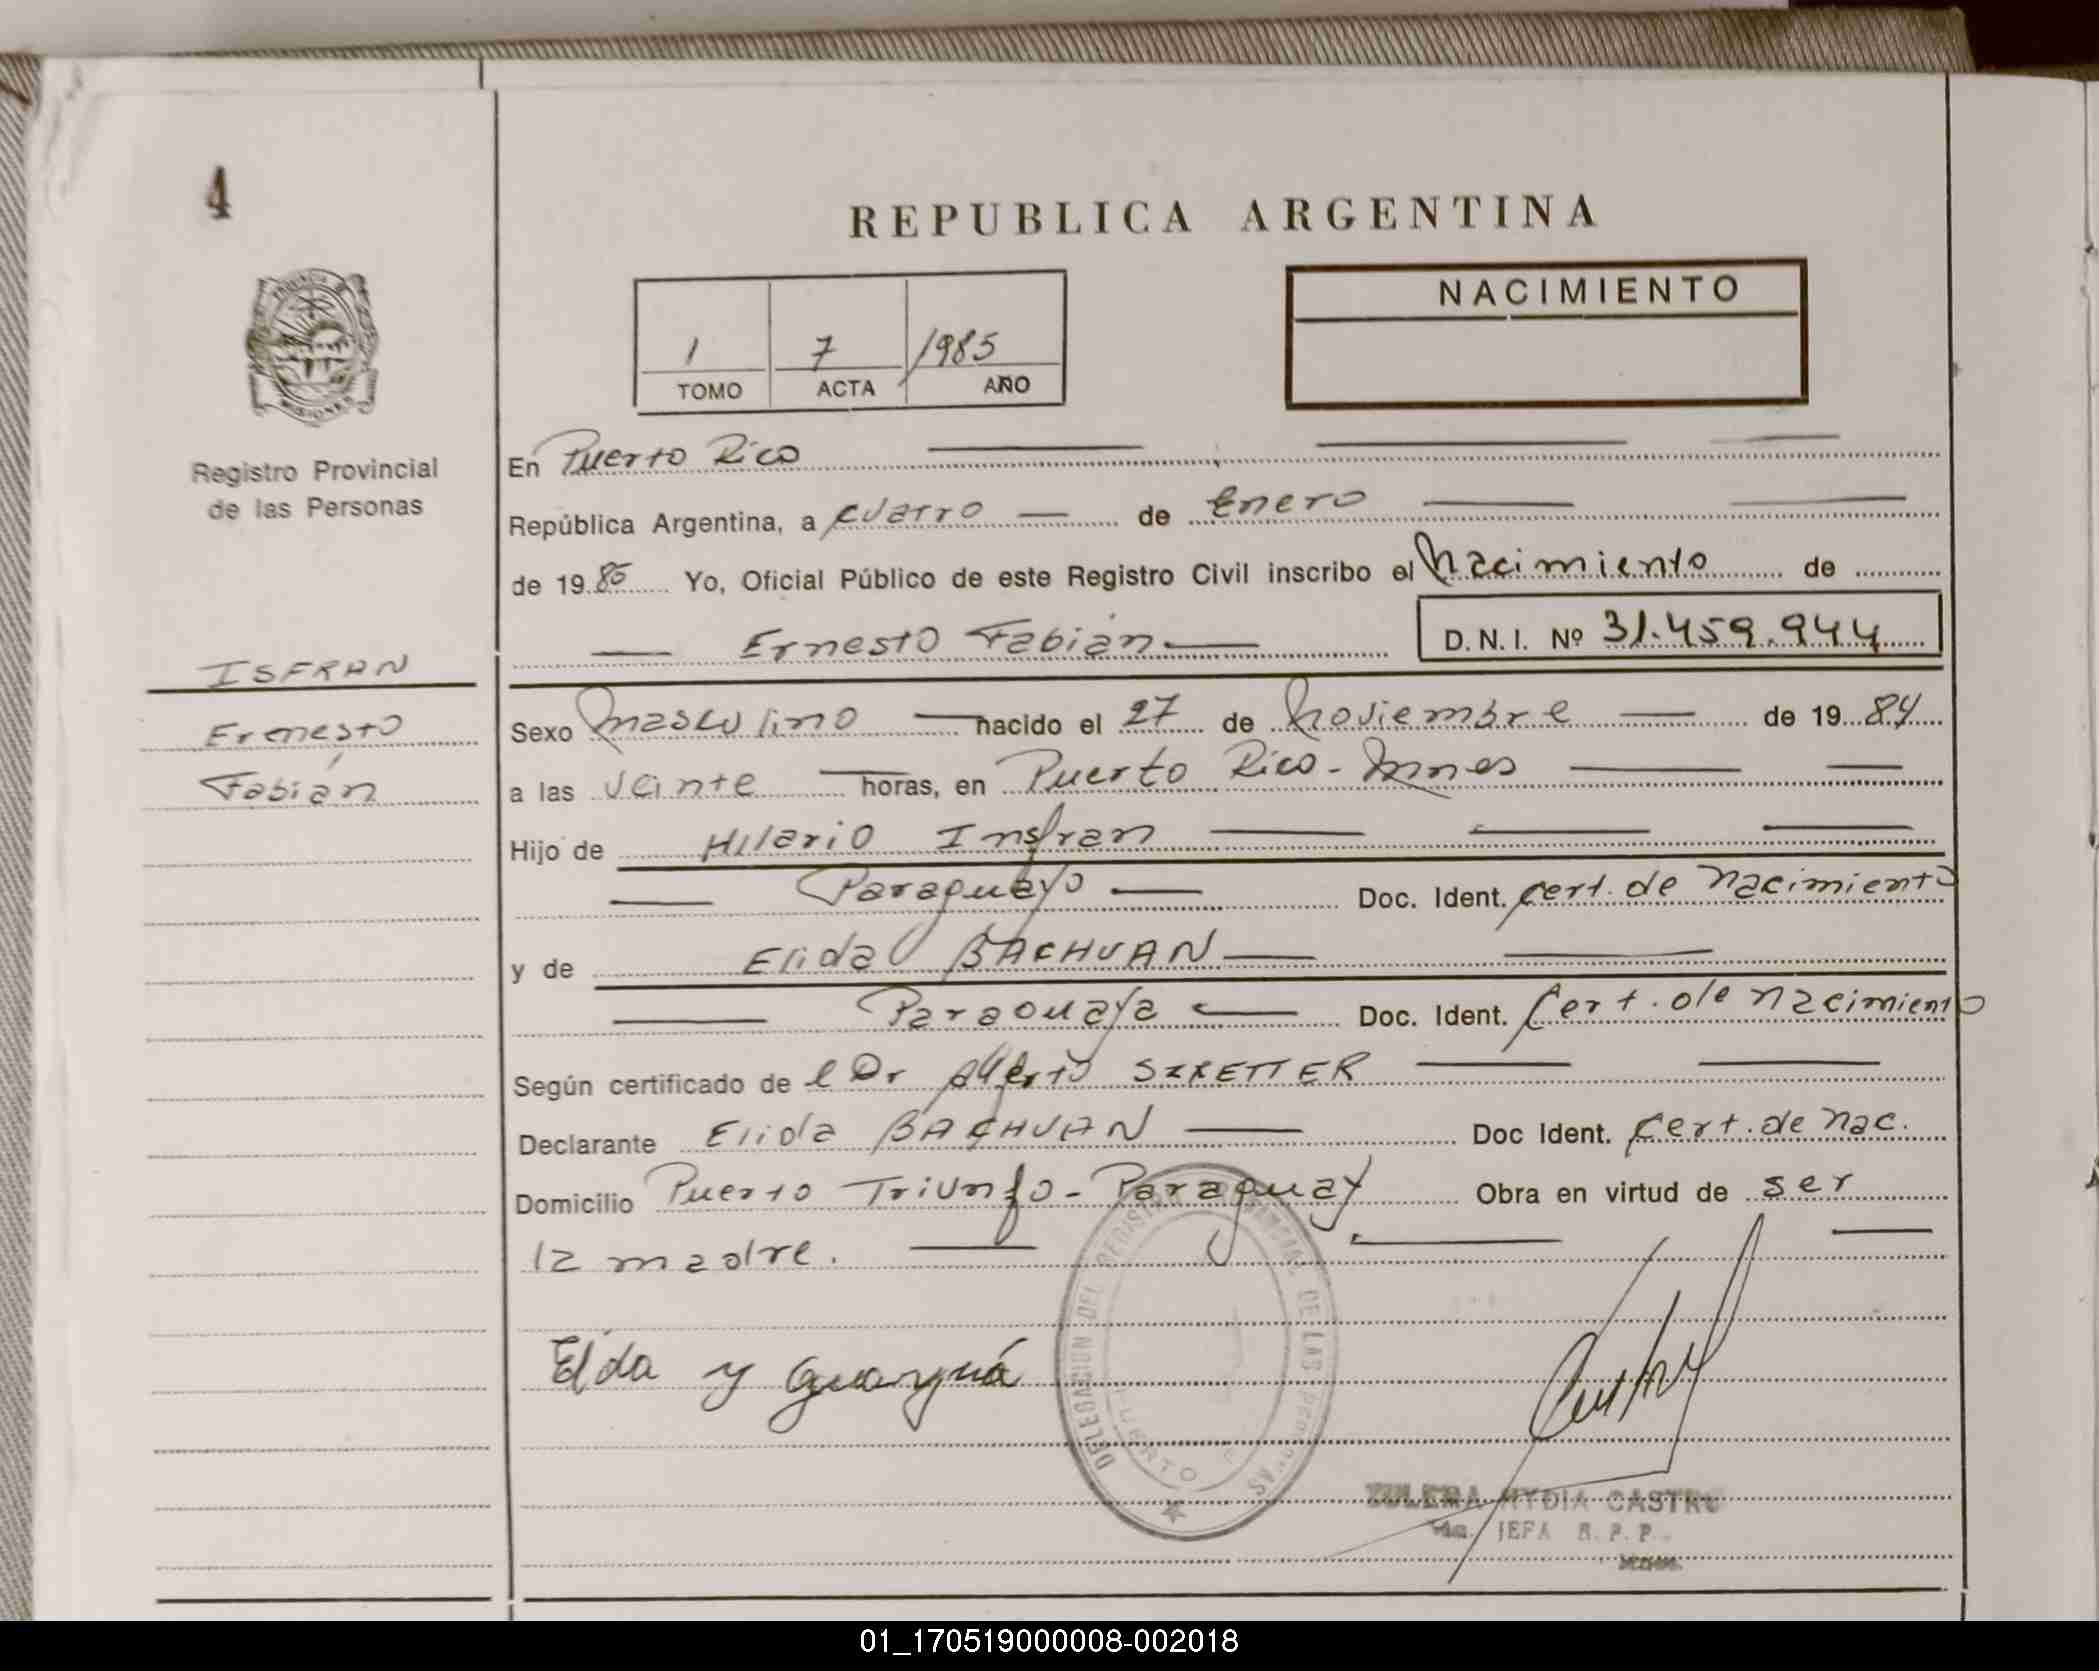 4
REPUBLICA ARGENTINA
NACIMIENTO
1 7 1985
TOMO ACTA AÑO
MISIONES
Registro Provincial
de las Personas
En Puerto Rico
República Argentina, a cuatro de Enero
de 19 85 Yo, Oficial Público de este Registro Civil inscribo el Nacimiento de
Ernesto Fabián D.N.I. Nº 31.459.944
ISFRAN
Ernesto
Fabián
Sexo masculino nacido el 27 de Noviembre de 19 84
a las veinte horas, en Puerto Rico - Mnes
Hijo de Hilario Insfran
Paraguayo Doc. Ident. Cert. de nacimiento
y de Elida BACHUAN
Paraguaya Doc. Ident. Cert. de nacimiento
Según certificado de l Dr Alberto
Declarante Elida BACHUAN Doc Ident. Cert. de nac.
Domicilio Puerto Triunfo - Paraguay Obra en virtud de ser
la madre.
DELEGACION DEL REGISTRO PROVINCIAL DE LAS PERSONAS
PUERTO
Elda y Guayná
ZULEMA NYDIA CASTRO
JEFA R. P. P.
01_170519000008-002018